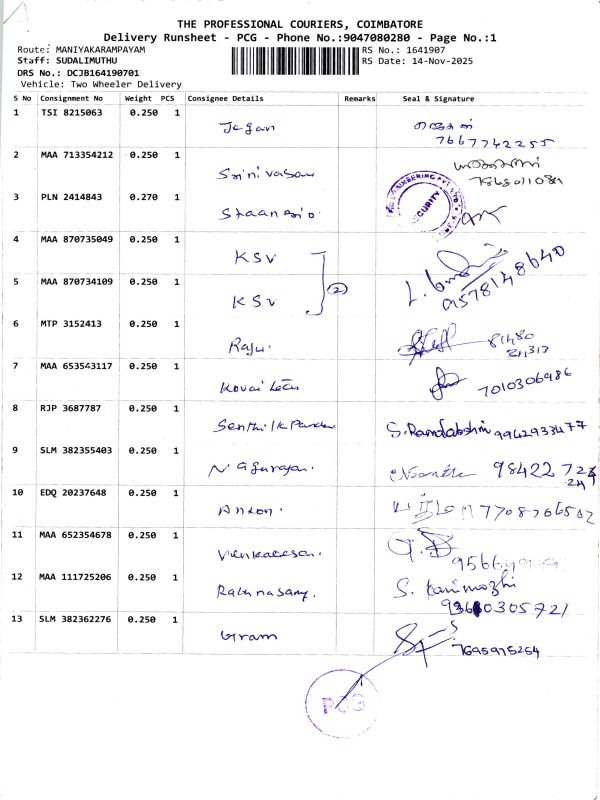 THE PROFESSIONAL COURIERS, COIMBATORE
Delivery Runsheet - PCG - Phone No.:9047080280 - Page No.:1
Route: MANIYAKARAMPAYAM RS No.: 1641907
Staff: SUDALIMUTHU RS Date: 14-Nov-2025
DRS No.: DCJB164190701
Vehicle: Two Wheeler Delivery
S No Consignment No Weight PCS Consignee Details Remarks Seal & Signature
1 TSI 8215063 0.250 1 Jegan
7667742255
2 MAA 713354212 0.250 1 Srinivasan
3 PLN 2414843 0.270 1
SECURITY
4 MAA 870735049 0.250 1 KSV
5 MAA 870734109 0.250 1 KSV (2) 9578148640
6 MTP 3152413 0.250 1 Raju.
7 MAA 653543117 0.250 1 Kovai 7010306986
8 RJP 3687787 0.250 1 9942933477
9 SLM 382355403 0.250 1 Nagarajan. 98422
10 EDQ 20237648 0.250 1 Anton. 7708766502
11 MAA 652354678 0.250 1 Venkatesan.
12 MAA 111725206 0.250 1 Rathnasamy. S. Kanimozhi
13 SLM 382362276 0.250 1 7695975254
PCG